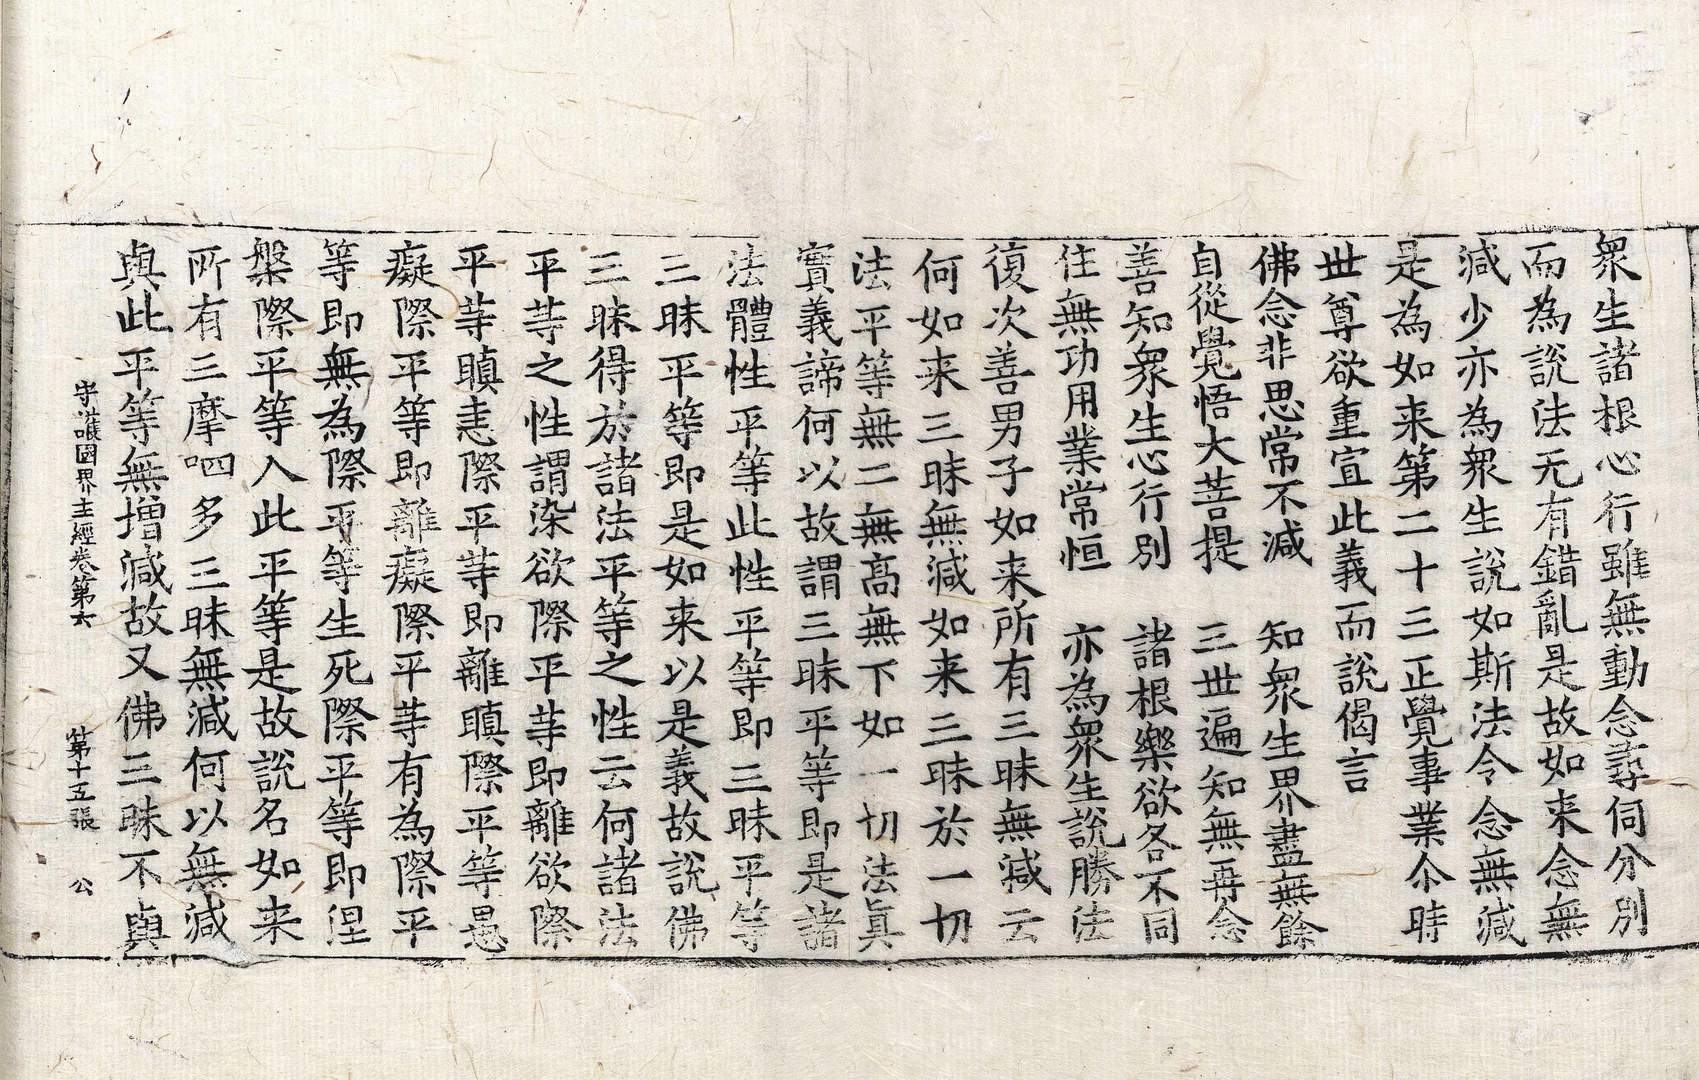 衆生諸根心行雖無動念尋伺分別
而為說法无有錯亂是故如来念無
減少亦為衆生說如斯法令念無減
是為如来第二十三正覺事業尒時
世尊欲重宣此義而說偈言
佛念非思常不減　知衆生界盡無餘
自從覺悟大菩提　三世遍知無再念
善知衆生心行別　諸根樂欲各不同
住無功用業常恒　亦為衆生說勝法
復次善男子如来所有三昧無減云
何如来三昧無減如来三昧於一切
法平等無二無高無下如一切法真
實義諦何以故謂三昧平等即是諸
法體性平等此性平等即三昧平等
三昧平等即是如来以是義故說佛
三昧得於諸法平等之性云何諸法
平等之性謂染欲際平等即離欲際
平等瞋恚際平等即離瞋際平等愚
癡際平等即離癡際平等有為際平
等即無為際平等生死際平等即涅
槃際平等入此平等是故說名如来
所有三摩呬多三昧無減何以無減
與此平等無增減故又佛三昧不與
守護國界主經卷第六　第十五張　公